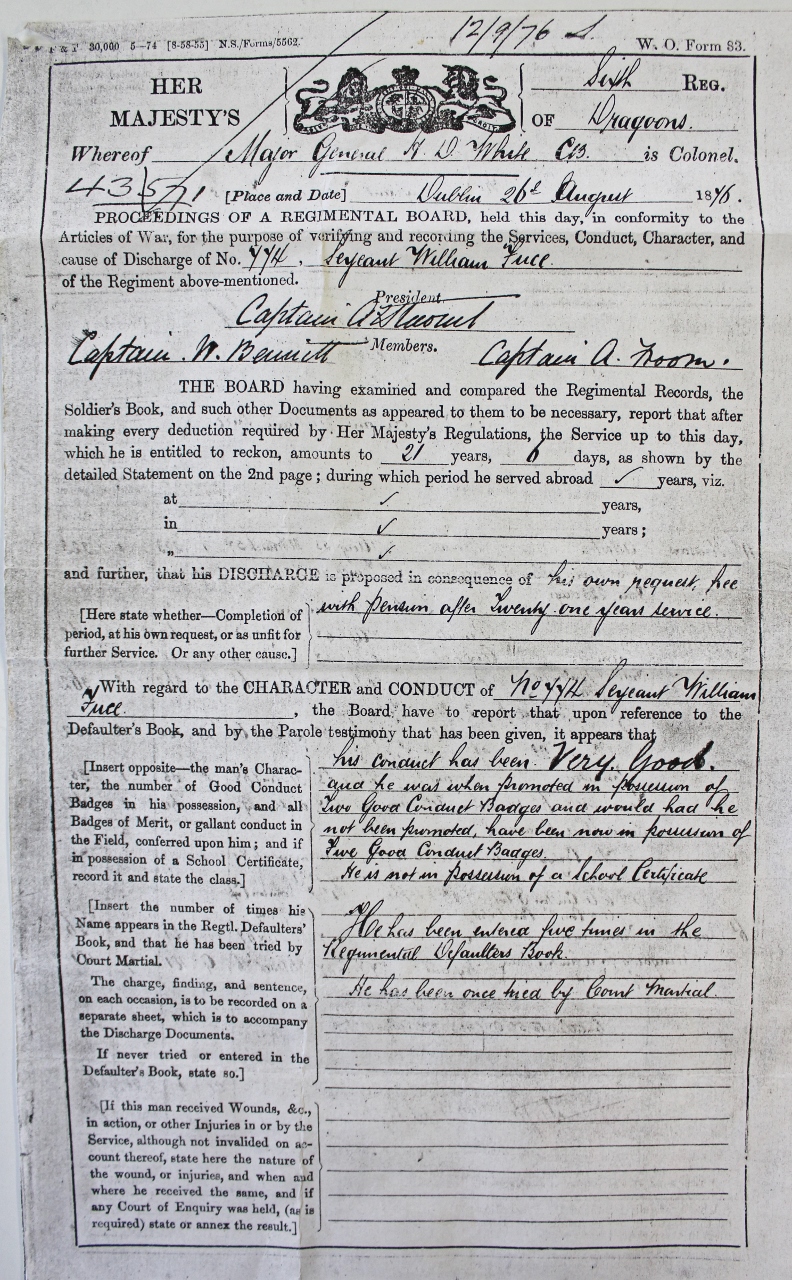 30,000 5—74 [8-58-55] N.S./Forms/5562.
12/9/76
W. O. Form 83.
HER
MAJESTY'S
Sixth REG.
OF Dragoons.
Whereof Major General H. D. White CB. is Colonel.
[Place and Date] Dublin 26th August 1876.
PROCEEDINGS OF A REGIMENTAL BOARD, held this day, in conformity to the
Articles of War, for the purpose of verifying and recording the Services, Conduct, Character, and
cause of Discharge of No. 774, Serjeant William
of the Regiment above-mentioned.
President.
Captain
Captain W. Bennett Members. Captain A.
THE BOARD having examined and compared the Regimental Records, the
Soldier's Book, and such other Documents as appeared to them to be necessary, report that after
making every deduction required by Her Majesty's Regulations, the Service up to this day,
which he is entitled to reckon, amounts to 21 years, 6 days, as shown by the
detailed Statement on the 2nd page; during which period he served abroad ✓ years, viz.
at ✓ years,
in ✓ years;
„ ✓
and further, that his DISCHARGE is proposed in consequence of his own request, free
with Pension after Twenty one years service.
[Here state whether—Completion of
period, at his own request, or as unfit for
further Service. Or any other cause.]
With regard to the CHARACTER and CONDUCT of No 774 Serjeant William
, the Board have to report that upon reference to the
Defaulter's Book, and by the Parole testimony that has been given, it appears that
his conduct has been Very Good.
and he was when promoted in possession of
Two Good Conduct Badges and would had he
not been promoted, have been now in possession of
Five Good Conduct Badges
He is not in possession of a School Certificate
[Insert opposite—the man's Charac-
ter, the number of Good Conduct
Badges in his possession, and all
Badges of Merit, or gallant conduct in
the Field, conferred upon him; and if
in possession of a School Certificate,
record it and state the class.]
[Insert the number of times his
Name appears in the Regtl. Defaulters'
Book, and that he has been tried by
Court Martial.
The charge, finding, and sentence,
on each occasion, is to be recorded on a
separate sheet, which is to accompany
the Discharge Documents.
If never tried or entered in the
Defaulter's Book, state so.]
He has been entered five times in the
Regimental Defaulters Book.
He has been once tried by Court Martial.
[If this man received Wounds, &c.,
in action, or other Injuries in or by the
Service, although not invalided on ac-
count thereof, state here the nature of
the wound, or injuries, and when and
where he received the same, and if
any Court of Enquiry was held, (as is
required) state or annex the result.]